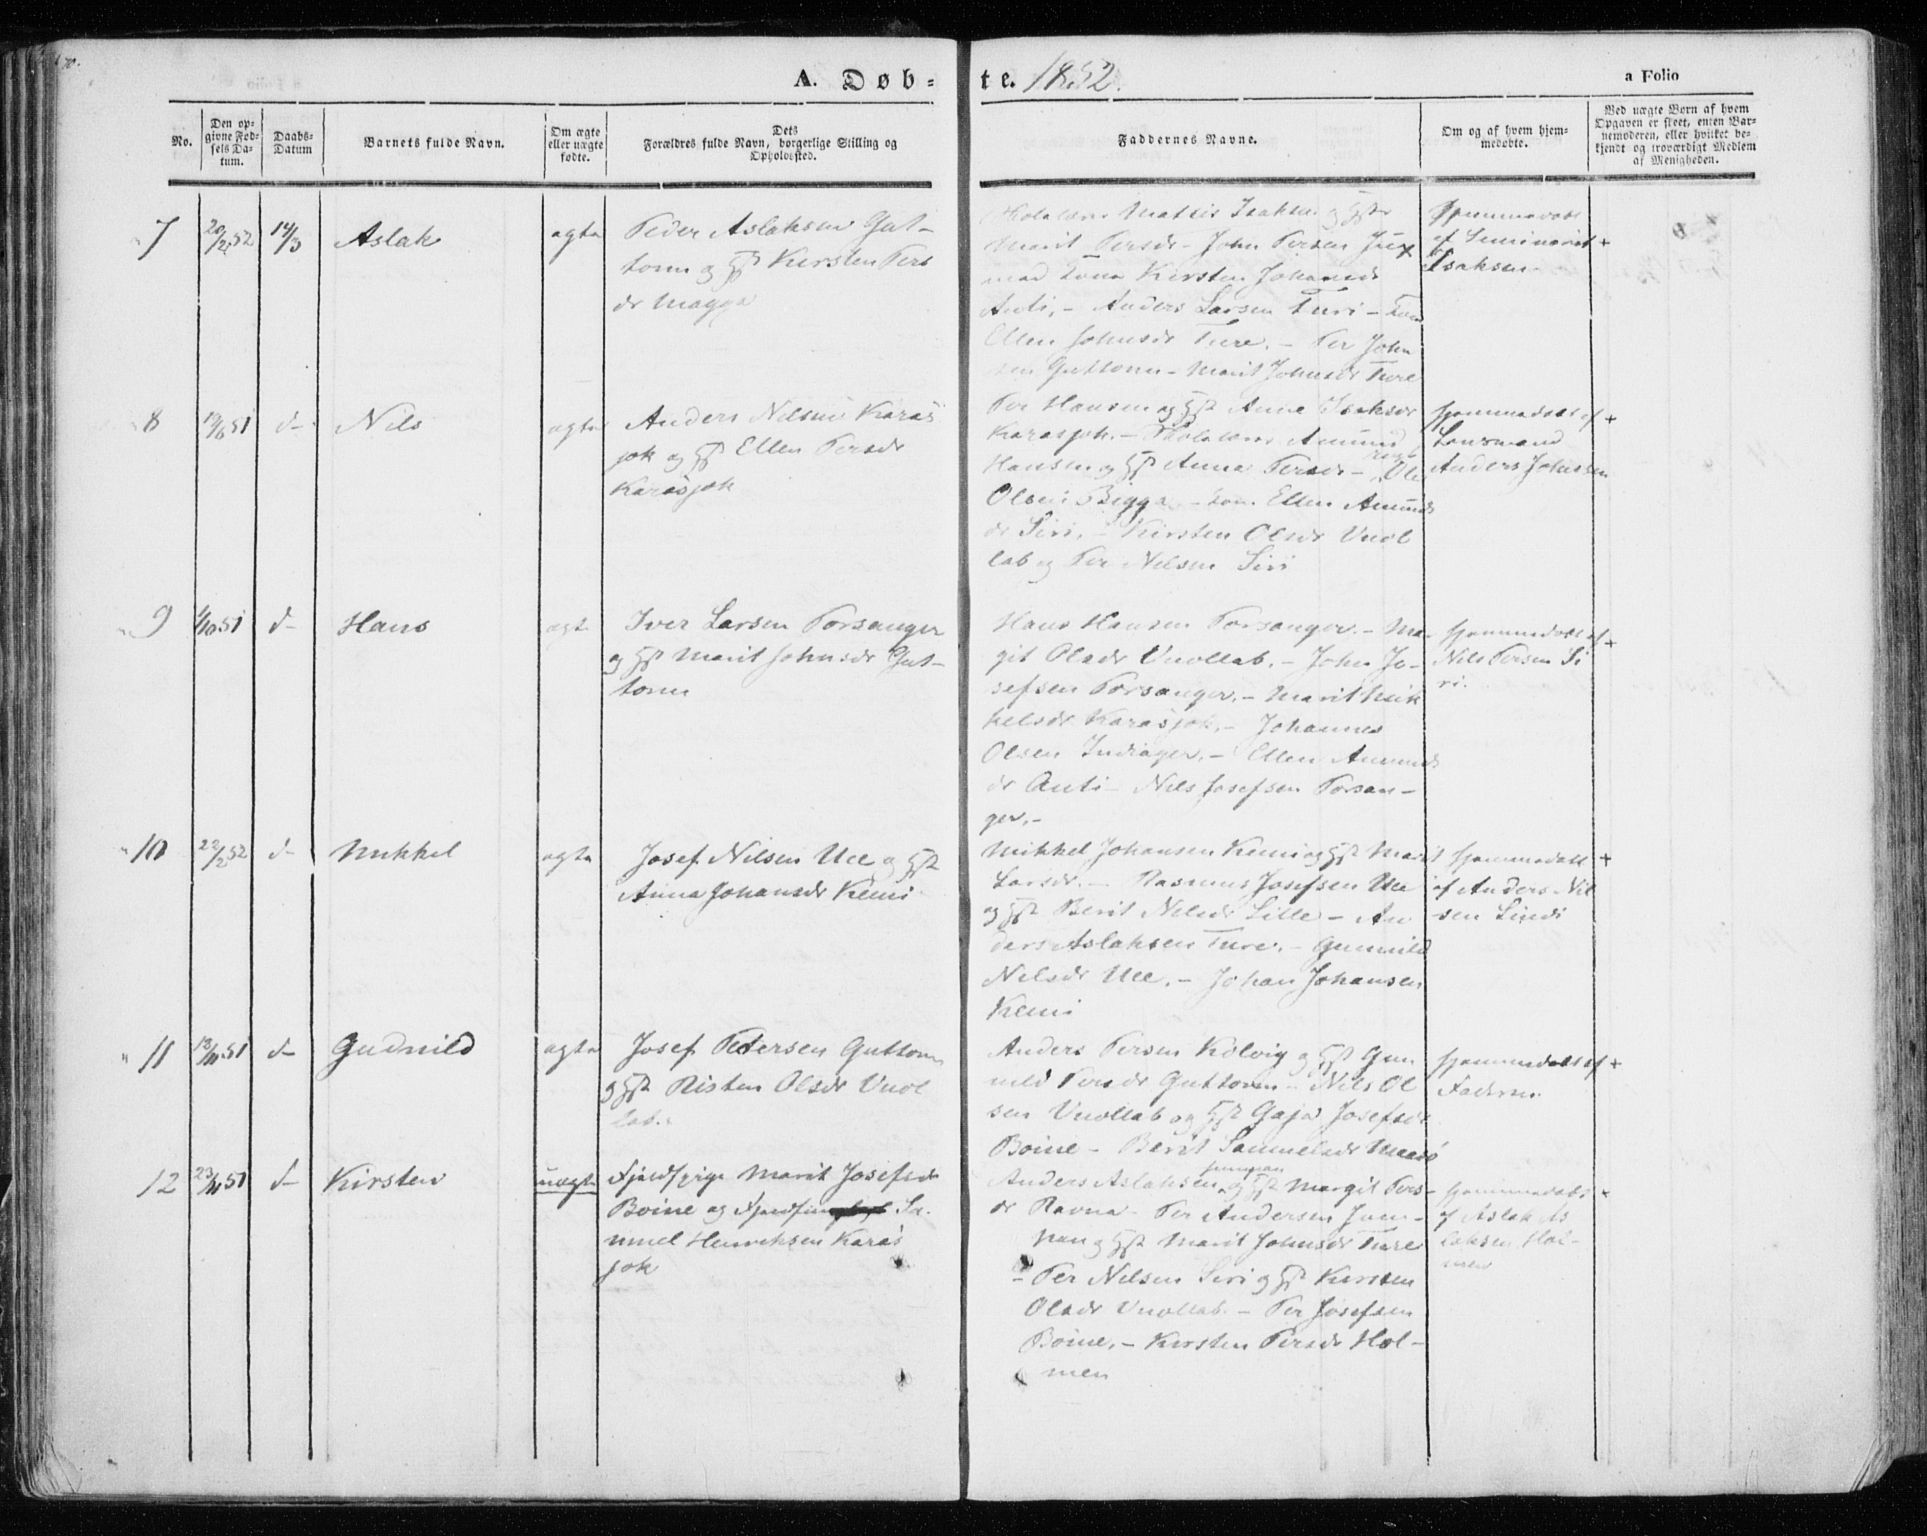 A. Døb=
te. 1852.
a Folio
No.
Den op-
givne Fød-
sels Da-
tum.
Daabs-
Datum
Barnets fulde Navn.
Om ægte
eller uægte
fødte.
Dets
Forældres fulde Navn, borgerlige Stilling og
Opholdssted.
Faddernes Navne.
Om og af hvem hjem-
medøbte.
Ved uægte Børn af hvem
Opgaven er skeet, enten Bar-
nemoderen, eller hvilket be-
kjendt og troværdigt Medlem
af Menigheden.
7
20/2 52
14/3
Aslak
ægte
Peder Aslaksen Gut-
torm og Hst Kirsten Pers
dr Magga
Skolelærer Mathis Isaksen og Hstr
Marit Persdr - John Persen
Kirsten Johansdr
Anti, - Anders Larsen Turi -
Ellen Johnsdr Ture. - Per John
sen Guttorm - Marit Johnsdr Ture
Hjemmedøbt
af Seminarist +
Isaksen
8
19/6 51
d-
Nils
ægte
Anders Nilsen Karas
jok og Hst Ellen Persdr
Karasjok
Per Hansen og Hst Anne Isaksdr
Karasjok. - Skolelærer Amund
Hansen og Hst Anna Persdr - Ole
Olsen Bigga, - Ellen Amunds
dr Siri, - Kirsten Olsdr Vuol
lab og Per Nilsen Siri
Hjemmedøbt af +
Lensmand
Anders Johnsen
9
1/10 51
d-
Hans
ægte
Iver Larsen Porsanger
og Hst Marit Johnsdr Gut-
torm
Hans Hansen Porsanger. - Mar-
git Olsdr Vuollab. - John Jo-
sefsen Porsanger. - Marit Mik
kelsdr Karasjok, - Johannes
Olsen Indiager, - Ellen Amunds
dr Anti - Nils Josefsen Porsan-
ger. -
Hjemmedøbt af +
Nils Persen Si
ri.
10
22/2 52
d-
Mikkel
ægte
Josef Nilsen Ucc og Hst
Anna Johansdr Kemi
Mikkel Johansen Kemi og Hst Marit
Larsdr. - Rasmus Josefsen Ucc
og Hst Berit Nilsdr Lille - An
ders Aslaksen Ture. - Gunnild
Nilsdr Ucc. - Johan Johansen
Kemi
Hjemmedøbt +
af Anders Nil
sen
11
13/11 51
d-
Gudnild
ægte
Josef Pedersen Guttorm
og Hst Risten Olsdr Vuol
lab.
Anders Persen Kolvig og Hst Gun
nild Persdr Guttorm - Nils Ol
sen Vuollab og Hst Gaja Josefsdr
Boine - Berit Sammelsdr
Hjemmedøbt af +
Faderen
12
23/11 51
d-
Kirsten
uægte
Fjeldpige Marit Josefsdr
Boine og Sa-
muel Henriksen Karas
jok
Anders Aslaksen og Hst Margit Pers-
dr Ravna - Per Andersen Jun-
nan og Hst Marit Johnsdr Ture
- Per Nilsen Siri og Hst Kirsten
Olsdr Vuollab. - Per Josefsen
Boine. - Kirsten Persdr Hol-
men
Hjemmedøbt +
af Aslak As
laksen Hol-
men